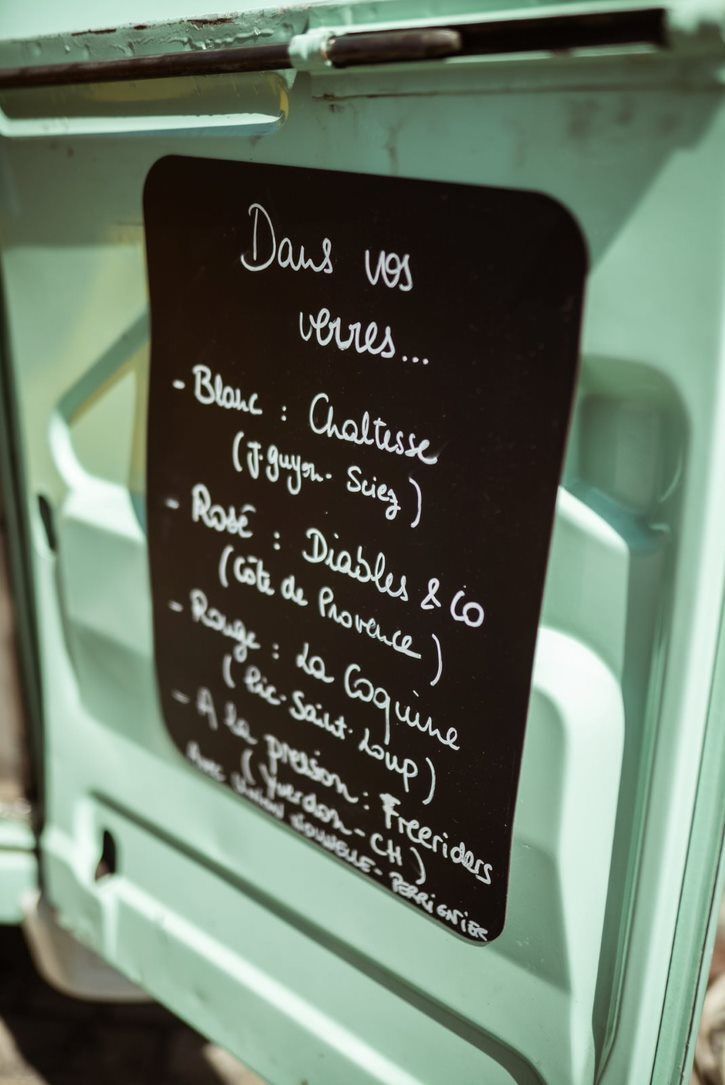 Dans vos
verres...
- Blanc : Chaltesse
(J. Guyon - Sciez)
- Rosé : Diables & Co
(Côte de Provence)
- Rouge : La Coquine
(Pic-Saint-Loup)
- A la pression : Freeriders
(Yverdon - CH)
AVEC UNION NOUVELLE - PERRIGNIER